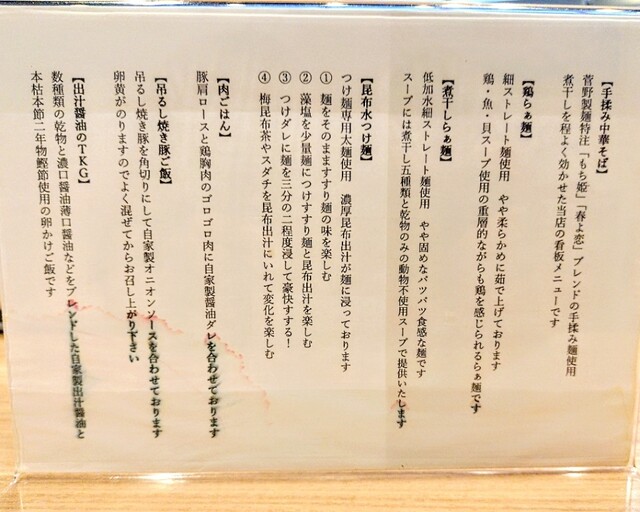 【手揉み中華そば】
菅野製麺特注「もち姫」「春よ恋」ブレンドの手揉み麺使用
煮干しを程よく効かせた当店の看板メニューです
【鶏らぁ麺】
細ストレート麺使用　やや柔らかめに茹で上げております
鶏・魚・貝スープ使用の重層的ながらも鶏を感じられるらぁ麺です
【煮干しらぁ麺】
低加水細ストレート麺使用　やや固めなパツパツ食感な麺です
スープには煮干し五種類と乾物のみの動物不使用スープで提供いたします
【昆布水つけ麺】
つけ麺専用太麺使用　濃厚昆布出汁が麺に浸っております
① 麺をそのまますすり麺の味を楽しむ
② 藻塩を少量麺につけすすり麺と昆布出汁を楽しむ
③ つけダレに麺を三分の二程度浸して豪快すする！
④ 梅昆布茶やスダチを昆布出汁にいれて変化を楽しむ
【肉ごはん】
豚肩ロースと鶏胸肉のゴロゴロ肉に自家製醤油ダレを合わせております
【吊るし焼き豚ご飯】
吊るし焼き豚を角切りにして自家製オニオンソースを合わせております
卵黄がのりますのでよく混ぜてからお召し上がり下さい
【出汁醤油のTKG】
数種類の乾物と濃口醤油薄口醤油などをブレンドした自家製出汁醤油と
本枯本節二年物鰹節使用の卵かけご飯です